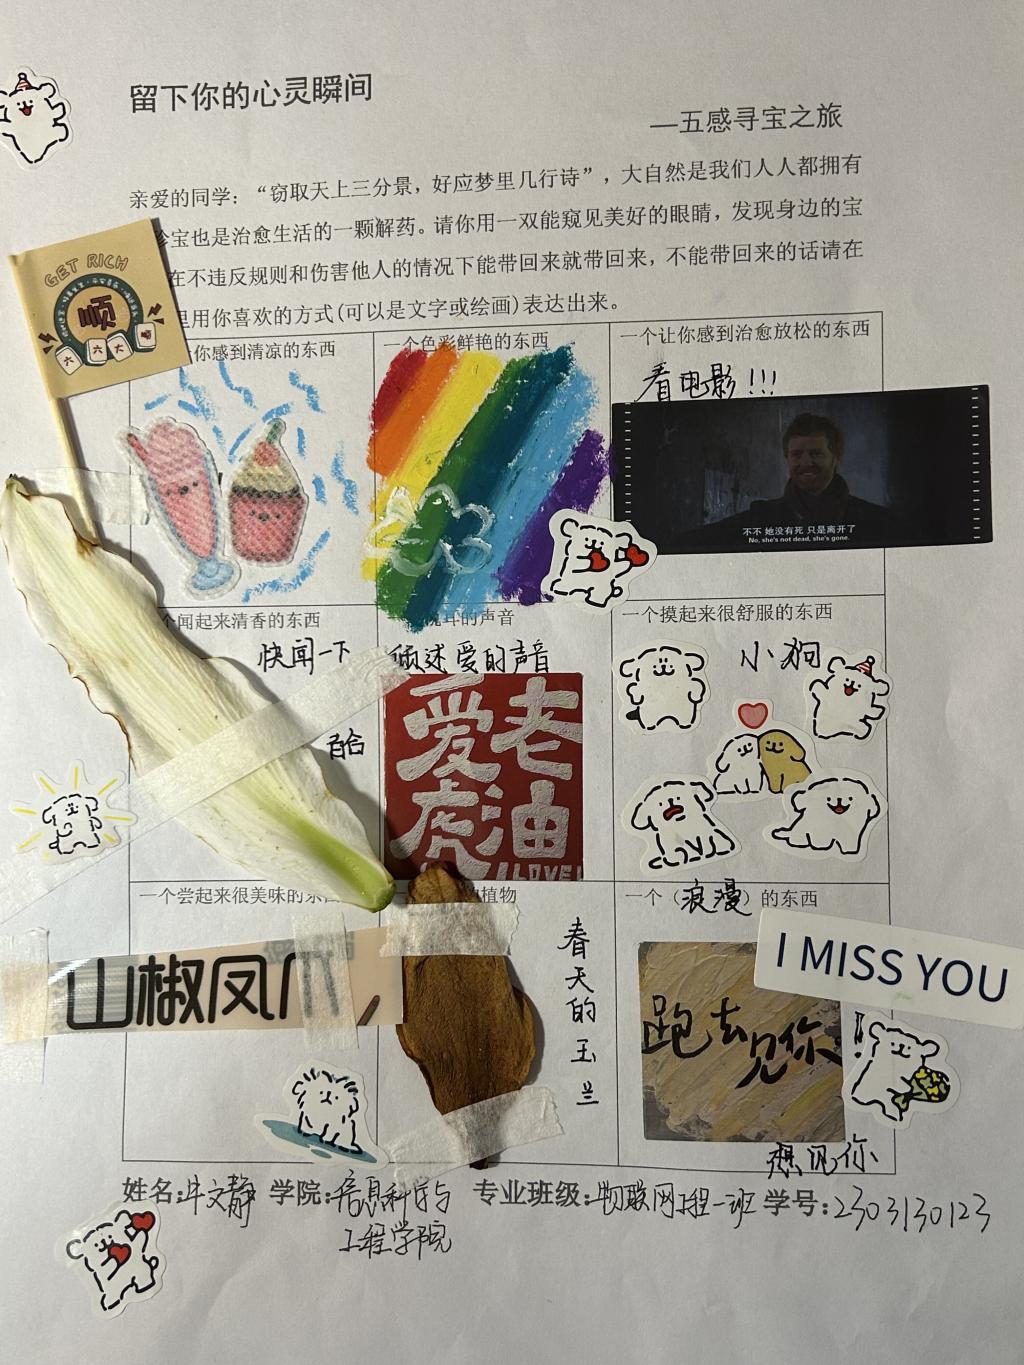 留下你的心灵瞬间
—五感寻宝之旅
亲爱的同学：“窃取天上三分景，好应梦里几行诗”，大自然是我们人人都拥有
珍宝也是治愈生活的一颗解药。请你用一双能窥见美好的眼睛，发现身边的宝
在不违反规则和伤害他人的情况下能带回来就带回来，不能带回来的话请在
里用你喜欢的方式(可以是文字或绘画)表达出来。
GET RICH
顺
六
六
大
顺
你感到清凉的东西
一个色彩鲜艳的东西
一个让你感到治愈放松的东西
看电影!!!
不不 她没有死 只是离开了
No, she's not dead, she's gone.
个闻起来清香的东西
快闻一下
百合
耳的声音
倾述爱的声音
爱老
虎油
I LOVE
一个摸起来很舒服的东西
小狗
一个尝起来很美味的东
山椒凤爪
植物
春天的玉兰
一个（浪漫）的东西
I MISS YOU
跑去见你
想见你
姓名:牛文静 学院:信息科学与工程学院 专业班级:物联网工程一班 学号:2303130123